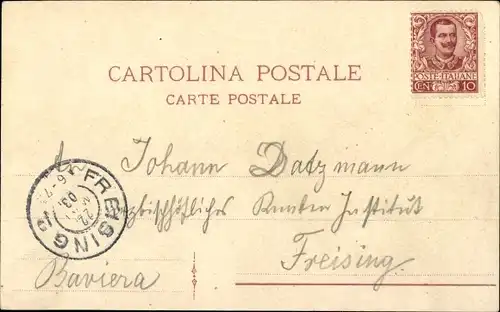 POSTE·ITALIANE
CENT 10
CARTOLINA POSTALE
CARTE POSTALE
An Johann Datzmann
FREISING 2
6-7
22
03
Erzbischöfliches Knaben Institut
Freising
Baviera